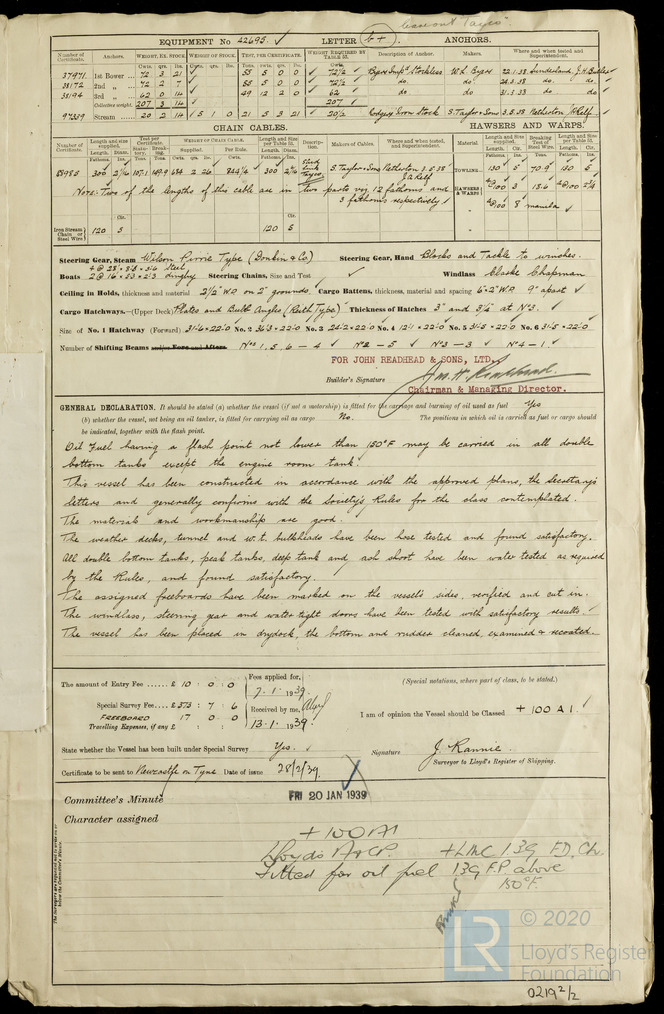 EQUIPMENT No 42695. ✓ LETTER (b+) ANCHORS.
Number of Certificate. Anchors. WEIGHT, EX. STOCK WEIGHT OF STOCK. TEST, PER CERTIFICATE. WEIGHT REQUIRED BY TABLE 53. Description of Anchor. Makers. Where and when tested and Superintendent.
37971 1st Bower ... 72 3 21 55 5 0 0 72½ Byers Impd Stockless W. L. Byers 22.1.38 Sunderland J. H. Butler
38172 2nd „ ... 72 2 7 55 5 0 0 72½ do do 24.3.38 do. do.
38194 3rd „ ... 62 0 14 49 12 2 0 62 do do. 31.3.38 do do.
Collective weight. 207 3 14 207
97359 Stream ... 20 2 14 5 1 0 21 5 3 21 20½ Rodgers Iron Stock S. Taylor & Sons 3.5.38 Netherton J. Relf.
CHAIN CABLES. HAWSERS AND WARPS.
Number of Certificate. Length and size supplied. Test per Certificate. WEIGHT OF CHAIN CABLE. Length and Size per Table 53. Description. Makers of Cables. Where and when tested, and Superintendent. Material Length and Size supplied. Breaking Test of Steel Wire. Length and Size per Table 53.
Fathoms. Diam. Tons. Tons. Supplied. Per Rule. Fathoms. Diam.
300 2 5/16 107.1 149.9 684 2 26 300 2 5/16 Stud Link Tayco S. Taylor & Sons Netherton 3.5.38 J. Relf TOWLING... 130 5 70.9 130 5
Note:- Two of the lengths of this cable are in two parts viz. 12 fathoms and 3 fathoms respectively HAWSERS & WARPS 4@100 3 18.6 4@100 2¾
4@100 8 manila
Iron Stream Chain or Steel Wire 120 5 120 5
Steering Gear, Steam Wilson Pirrie Type (Donkin & Co) Steering Gear, Hand Blocks and Tackle to winches.
Boats 4 @ 28 × 8.5 × 3.6 Steel 2 @ 16 × 5.3 × 2.3 dinghy Steering Chains, Size and Test ✓ Windlass Clarke Chapman
Ceiling in Holds, thickness and material 2½" W.P. on 2" grounds. Cargo Battens, thickness, material and spacing 6×2" W.P. 9" apart ✓
Cargo Hatchways.—(Upper Deck) Plates and Bulb Angles (Ruth Type) Thickness of Hatches 3" and 3¼" at No3. ✓
Size of No. 1 Hatchway (Forward) 31'6 × 22'0 No. 2 36'3 × 22'0 No. 3 24'2 × 22'0 No. 4 12'1 × 22'0 No. 5 31'5 × 22'0 No. 6 31'5 × 22'0
Number of Shifting Beams and/or Fore and Afters Nos 1, 5, 6 - 4 ✓ No 2 - 5 ✓ No 3 - 3 ✓ No 4 - 1. ✓
FOR JOHN READHEAD & SONS, LTD.
Builder's Signature Jas. H. Readhead.
Chairman & Managing Director.
GENERAL DECLARATION. It should be stated (a) whether the vessel (if not a motorship) is fitted for the carriage and burning of oil used as fuel Yes
(b) whether the vessel, not being an oil tanker, is fitted for carrying oil as cargo No. The positions in which oil is carried as fuel or cargo should
be indicated, together with the flash point.
Oil Fuel having a flash point not lower than 150°F may be carried in all double
bottom tanks except the engine room tank.
This vessel has been constructed in accordance with the approved plans, the Secretary's
letters and generally confirms with the Society's Rules for the class contemplated.
The materials and workmanship are good.
The weather decks, tunnel and w.t. bulkheads have been hose tested and found satisfactory.
All double bottom tanks, peak tanks, deep tank and ash shoot have been water tested as required
by the Rules, and found satisfactory.
The assigned freeboards have been marked on the vessel's sides, verified and cut in.
The windlass, steering gear and water tight doors have been tested with satisfactory results.
The vessel has been placed in drydock, the bottom and rudder cleaned, examined & recoated.
The amount of Entry Fee ...... £ 10 : 0 : 0 Fees applied for,
7.1.1939. (Special notations, where part of class, to be stated.)
Special Survey Fee... £ 373 : 7 : 6 Received by me,
FREEBOARD 17 0 : 0 I am of opinion the Vessel should be Classed +100 A 1. ✓
Travelling Expenses, if any £ : : 13.1.1939.
State whether the Vessel has been built under Special Survey Yes. ✓ Signature J. Rannie.
Certificate to be sent to Newcastle on Tyne Date of issue 28/2/39. Surveyor to Lloyd's Register of Shipping.
Committee's Minute FRI 20 JAN 1939
Character assigned
+100A1
Lloyds A & CP. +LMC 1.39 F.D. Ch.
Fitted for oil fuel 1.39 F.P. above
150°F.
LR © 2020
Lloyd's Register
Foundation
0219 2/2